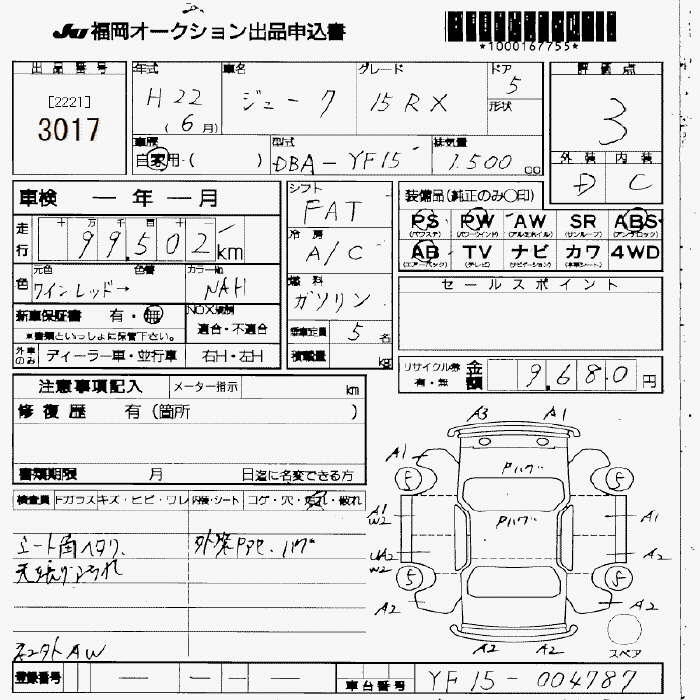 JU 福岡オークション出品申込書
*1000167755*
出品番号
[2221]
3017
年式
H22
(6月)
車名
ジューク
グレード
15RX
ドア
5
形状
評価点
3
外装 内装
D C
車歴
自家用・( )
型式
DBA-YF15
排気量
1.500 cc
車検 ― 年 ― 月
走行
十 万 千 百 十 一
99.502 km
色
元色 色替 カラーNo.
ワインレッド→ NAH
新車保証書 有・無
※書類といっしょに保管下さい。
NOX規制
適合・不適合
外車のみ ディーラー車・並行車 右H・左H
シフト
FAT
冷房
A/C
燃料
ガソリン
乗車定員 5 名
積載量 kg
装備品(純正のみ○印)
PS PW AW SR ABS
(パワステ) (パワーウインド) (アルミホイル) (サンルーフ) (アンチロック)
AB TV ナビ カワ 4WD
(エアーバック) (テレビ) (ナビゲーション) (本革シート)
セールスポイント
リサイクル券
有・無
金額 9.680 円
注意事項記入 メーター指示 km
修復歴 有(箇所 )
書類期限 月 日迄に名変できる方
検査員 Fガラス キズ・ヒビ・ワレ 内装・シート コゲ・穴・汚れ・破れ
シート角ヘタリ.
天張りヨゴレ
A3 A1
A1
Pハゲ
5 5
A1
W2
Pハゲ
A1
UA2
W2
A2
5 5
A2 A2
A2 A2
スペア
登録番号 ― ― ―
車台番号 YF15-004787